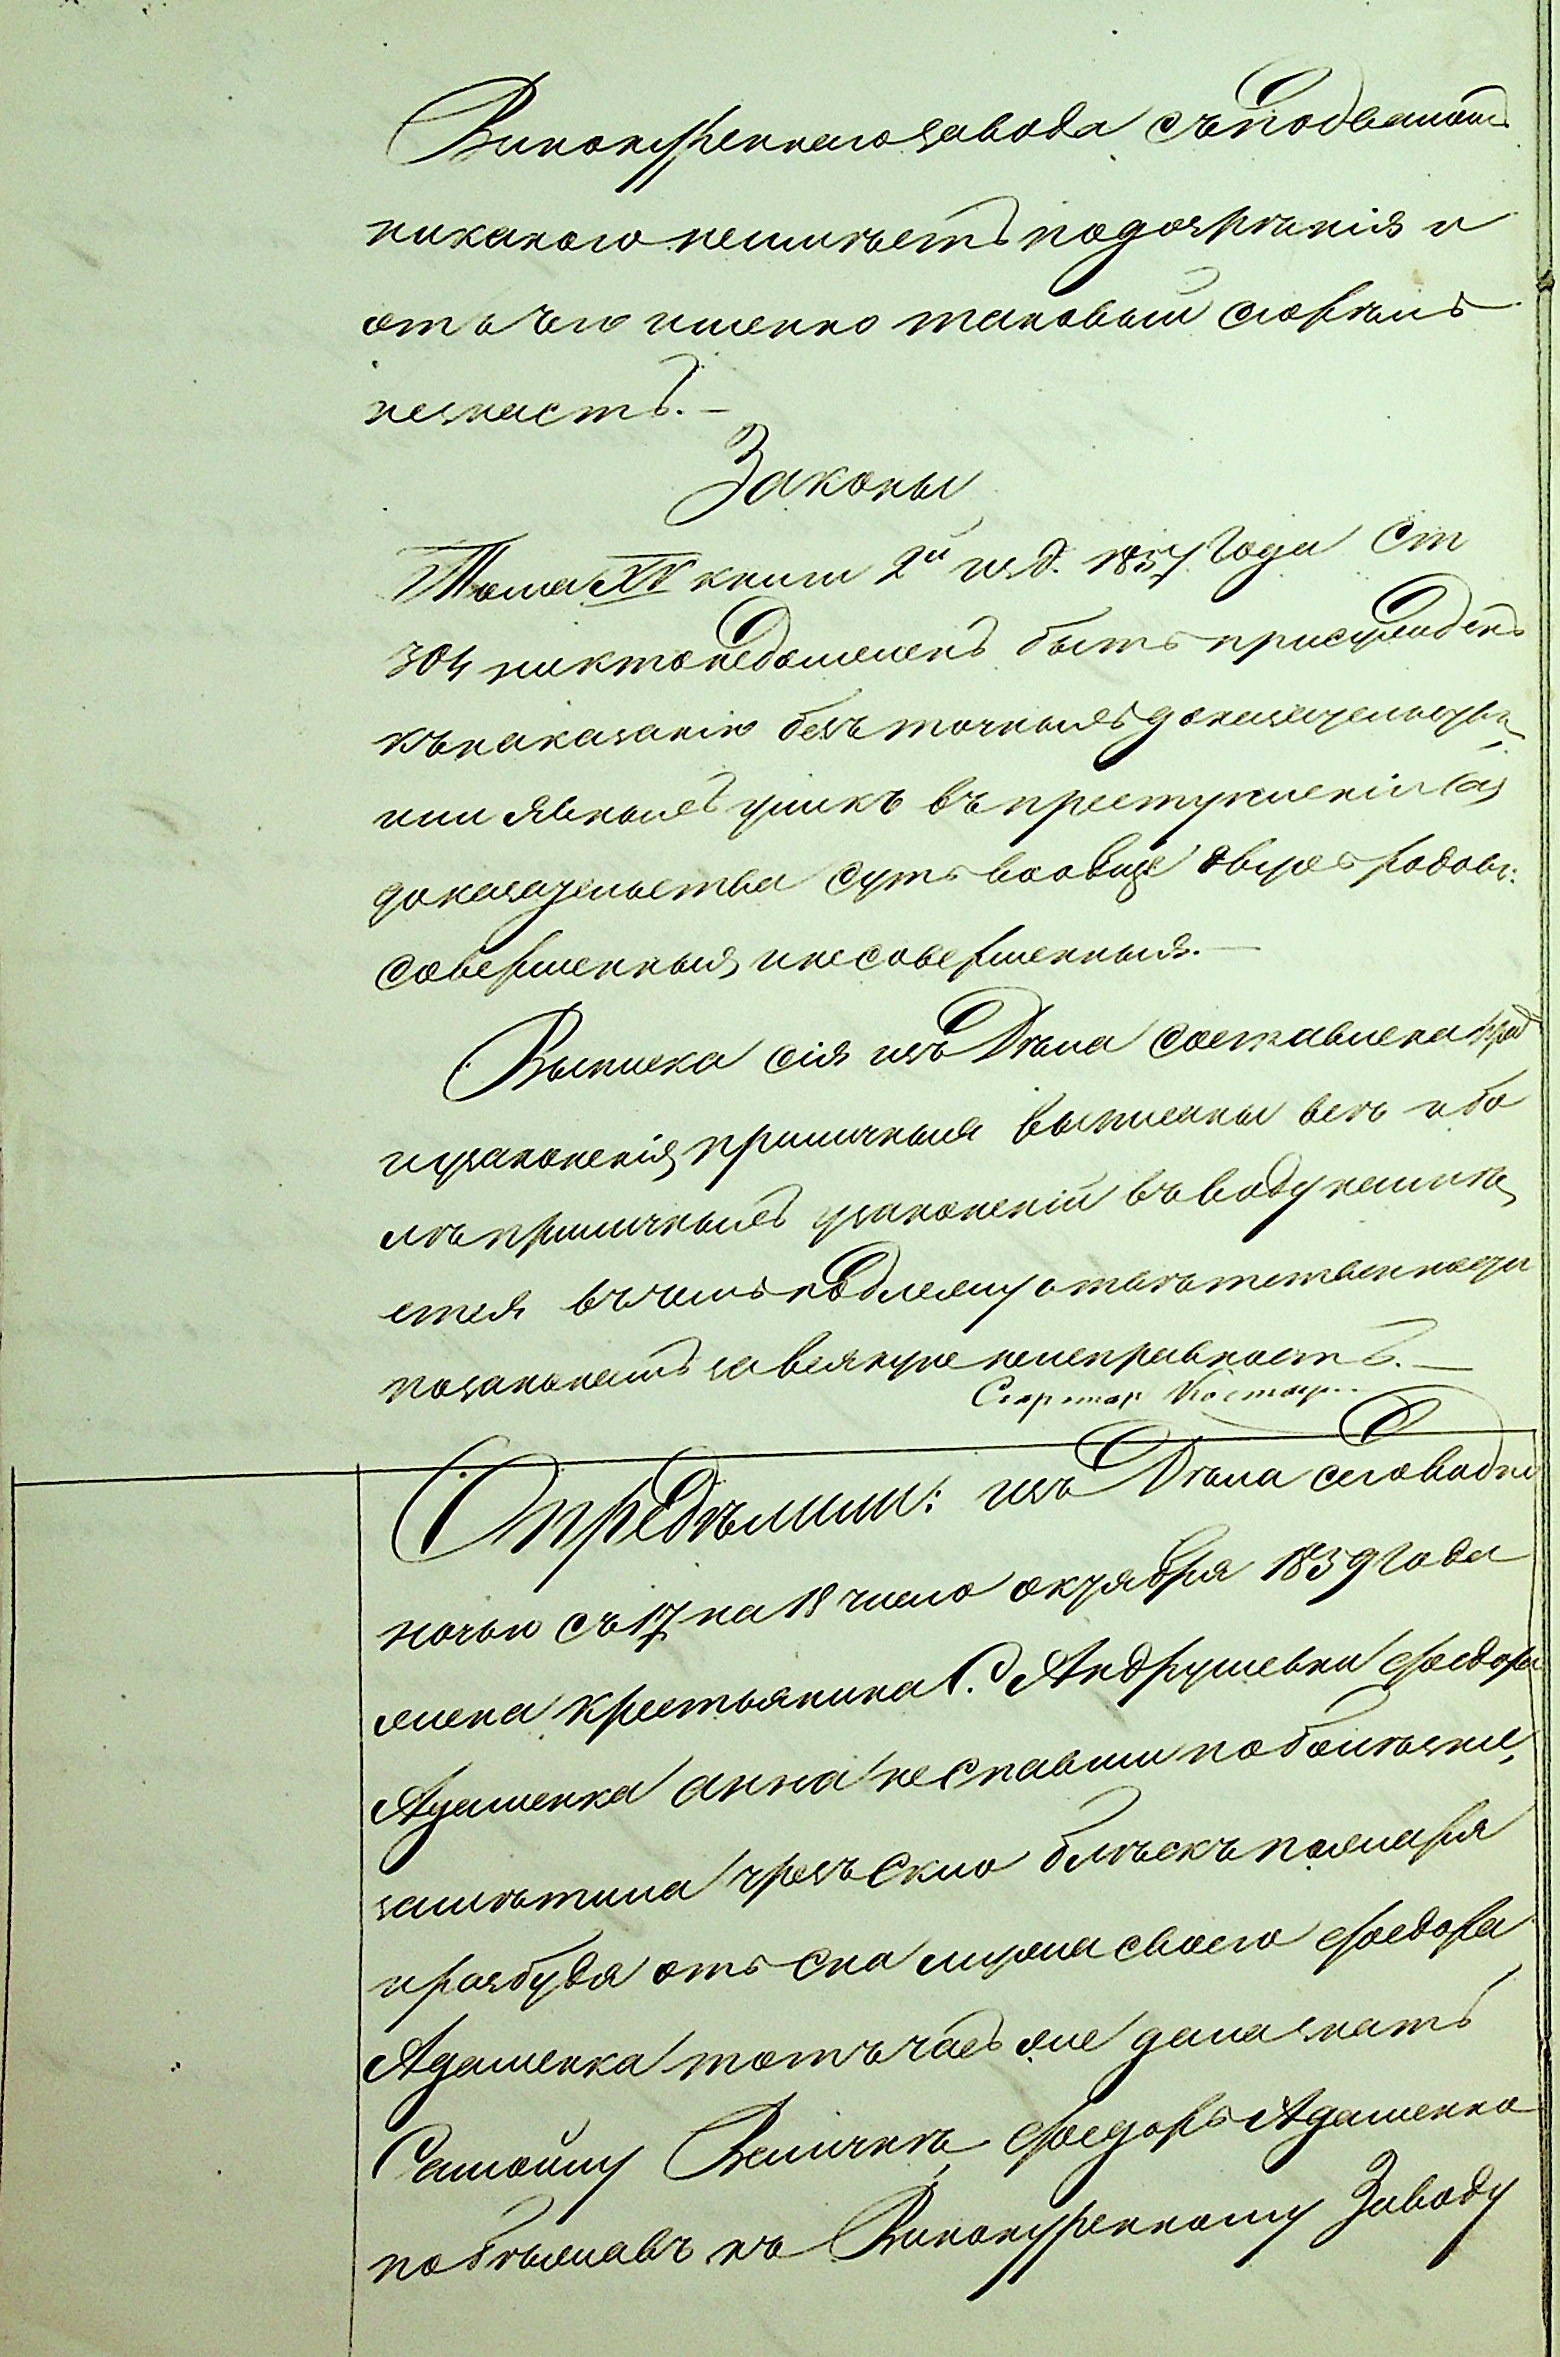 Винокуреннаго завода съ подвалом
никакого неимѣетъ подозрѣнія и
отъ чего именно таковый сгорѣлъ
незнаетъ. —
Законы
Тома XV книги 2й изд. 1857 Года Ст
304 никто недолженъ быть присужденъ
къ наказанію безъ точныхъ доказательствъ
или явныхъ уликъ въ преступленіи
доказательства суть вообще двухъ родовъ:
совершенныя и несовершенныя. —
Выписка сія изъ Дѣла составлена
и узаконенія приличныя выписаны всѣ ибо
лѣе приличныхъ узаконеній въ виду неимѣ
ется въ чемъ подлежу отвѣтственности
по законамъ за всякую неисправность. —
Секретарь
Опредѣлили: изъ Дѣла сего видно
ночью съ 17 на 18 число октября 1859 Года
жена крестьянина С. Андрушевки Федора
Адаменка Анна неспавши по болѣзни,
замѣтила чрезъ окно блескъ пожара
и разбудя отъ сна мужа своего Федора
Адаменка тотъ часъ же дала знать
Самойлу Величкѣ, Федоръ Адаменко
побѣжавъ къ Винокуренному Заводу